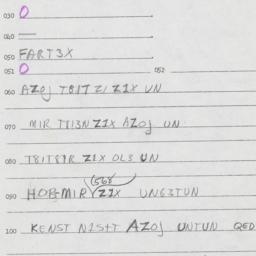 030 0
040 —
050 FART3X
051 0 052
060 AZOJ T8IT ZI Z1X UN
070 MIR T813N Z1X AZOJ UN
080 T8IT8IR Z1X OL3 UN
090 HOBMIR Z1X UNG3TUN
100 KENST N2S+T AZOJ UNTUN QED